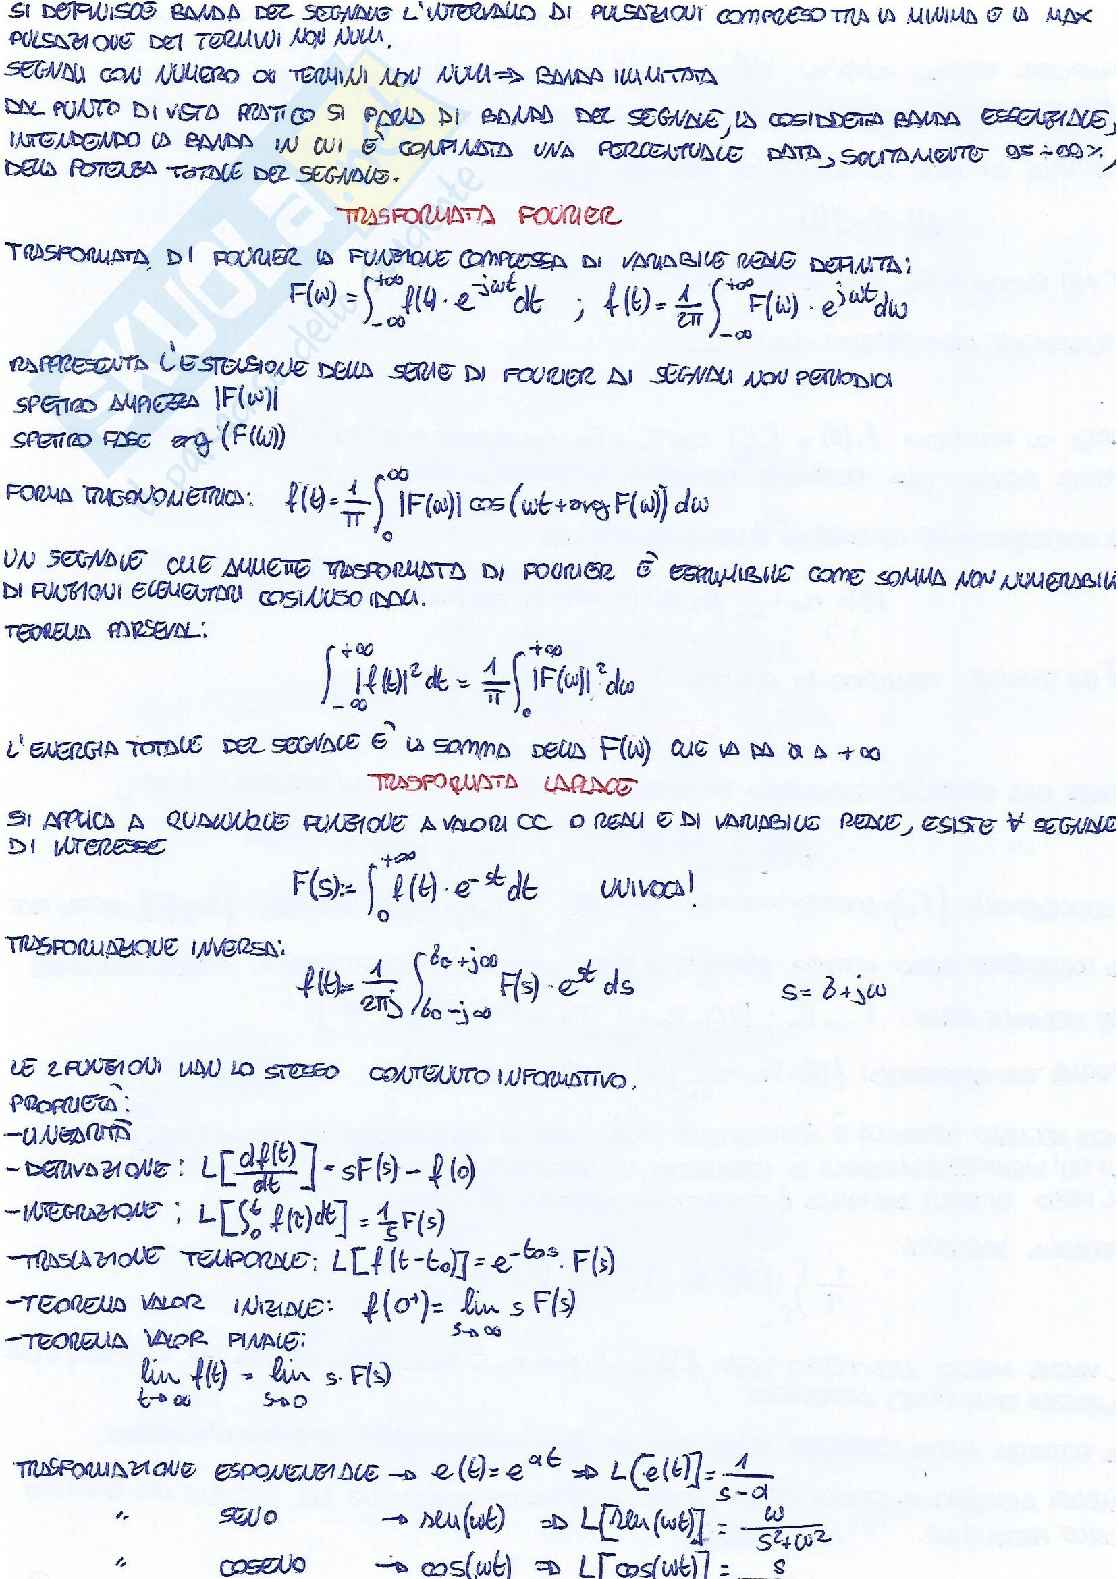 SI DEFINISCE BANDA DEL SEGNALE L'INTERVALLO DI PULSAZIONI COMPRESO TRA LA MINIMA E LA MAX
PULSAZIONE DEI TERMINI NON NULLI.
SEGNALI CON NUMERO DI TERMINI NON NULLI => BANDA ILLIMITATA
DAL PUNTO DI VISTA PRATICO SI PARLA DI BANDA DEL SEGNALE, LA COSIDDETTA BANDA ESSENZIALE,
INTENDENDO LA BANDA IN CUI È CONFINATA UNA PERCENTUALE DATA, SOLITAMENTE 95÷99%,
DELLA POTENZA TOTALE DEL SEGNALE.
TRASFORMATA FOURIER
TRASFORMATA DI FOURIER LA FUNZIONE COMPLESSA DI VARIABILE REALE DEFINITA:
F(ω) = ∫_{-∞}^{+∞} f(t) · e^{-jωt} dt ; f(t) = 1/2π ∫_{-∞}^{+∞} F(ω) · e^{jωt} dω
RAPPRESENTA L'ESTENSIONE DELLA SERIE DI FOURIER AI SEGNALI NON PERIODICI
SPETTRO AMPIEZZA |F(ω)|
SPETTRO FASE arg (F(ω))
FORMA TRIGONOMETRICA: f(t) = 1/π ∫_0^∞ |F(ω)| cos(ωt + arg F(ω)) dω
UN SEGNALE CHE AMMETTE TRASFORMATA DI FOURIER È ESPRIMIBILE COME SOMMA NON NUMERABILI
DI FUNZIONI ELEMENTARI COSINUSOIDALI.
TEOREMA PARSEVAL:
∫_{-∞}^{+∞} |f(t)|² dt = 1/π ∫_0^{+∞} |F(ω)|² dω
L'ENERGIA TOTALE DEL SEGNALE È LA SOMMA DELLA F(ω) CHE VA DA 0 A +∞
TRASFORMATA LAPLACE
SI APPLICA A QUALUNQUE FUNZIONE A VALORI CC O REALI E DI VARIABILE REALE, ESISTE ∀ SEGNALE
DI INTERESSE
F(s) := ∫_0^{+∞} f(t) · e^{-st} dt UNIVOCA!
TRASFORMAZIONE INVERSA:
f(t) = 1/2πj ∫_{σ₀-j∞}^{σ₀+j∞} F(s) · e^{st} ds s = σ + jω
LE 2 FUNZIONI HAN LO STESSO CONTENUTO INFORMATIVO.
PROPRIETÀ:
- LINEARITÀ
- DERIVAZIONE: L[df(t)/dt] = sF(s) - f(0)
- INTEGRAZIONE: L[∫_0^t f(τ)dτ] = 1/s F(s)
- TRASLAZIONE TEMPORALE: L[f(t-t₀)] = e^{-t₀s} · F(s)
- TEOREMA VALOR INIZIALE: f(0⁺) = lim_{s→∞} s F(s)
- TEOREMA VALOR FINALE:
lim_{t→∞} f(t) = lim_{s→0} s · F(s)
TRASFORMAZIONE ESPONENZIALE → e(t) = e^{at} => L[e(t)] = 1/(s-a)
" SENO → sen(ωt) => L[sen(ωt)] = ω/(s²+ω²)
" COSENO → cos(ωt) => L[cos(ωt)] = s